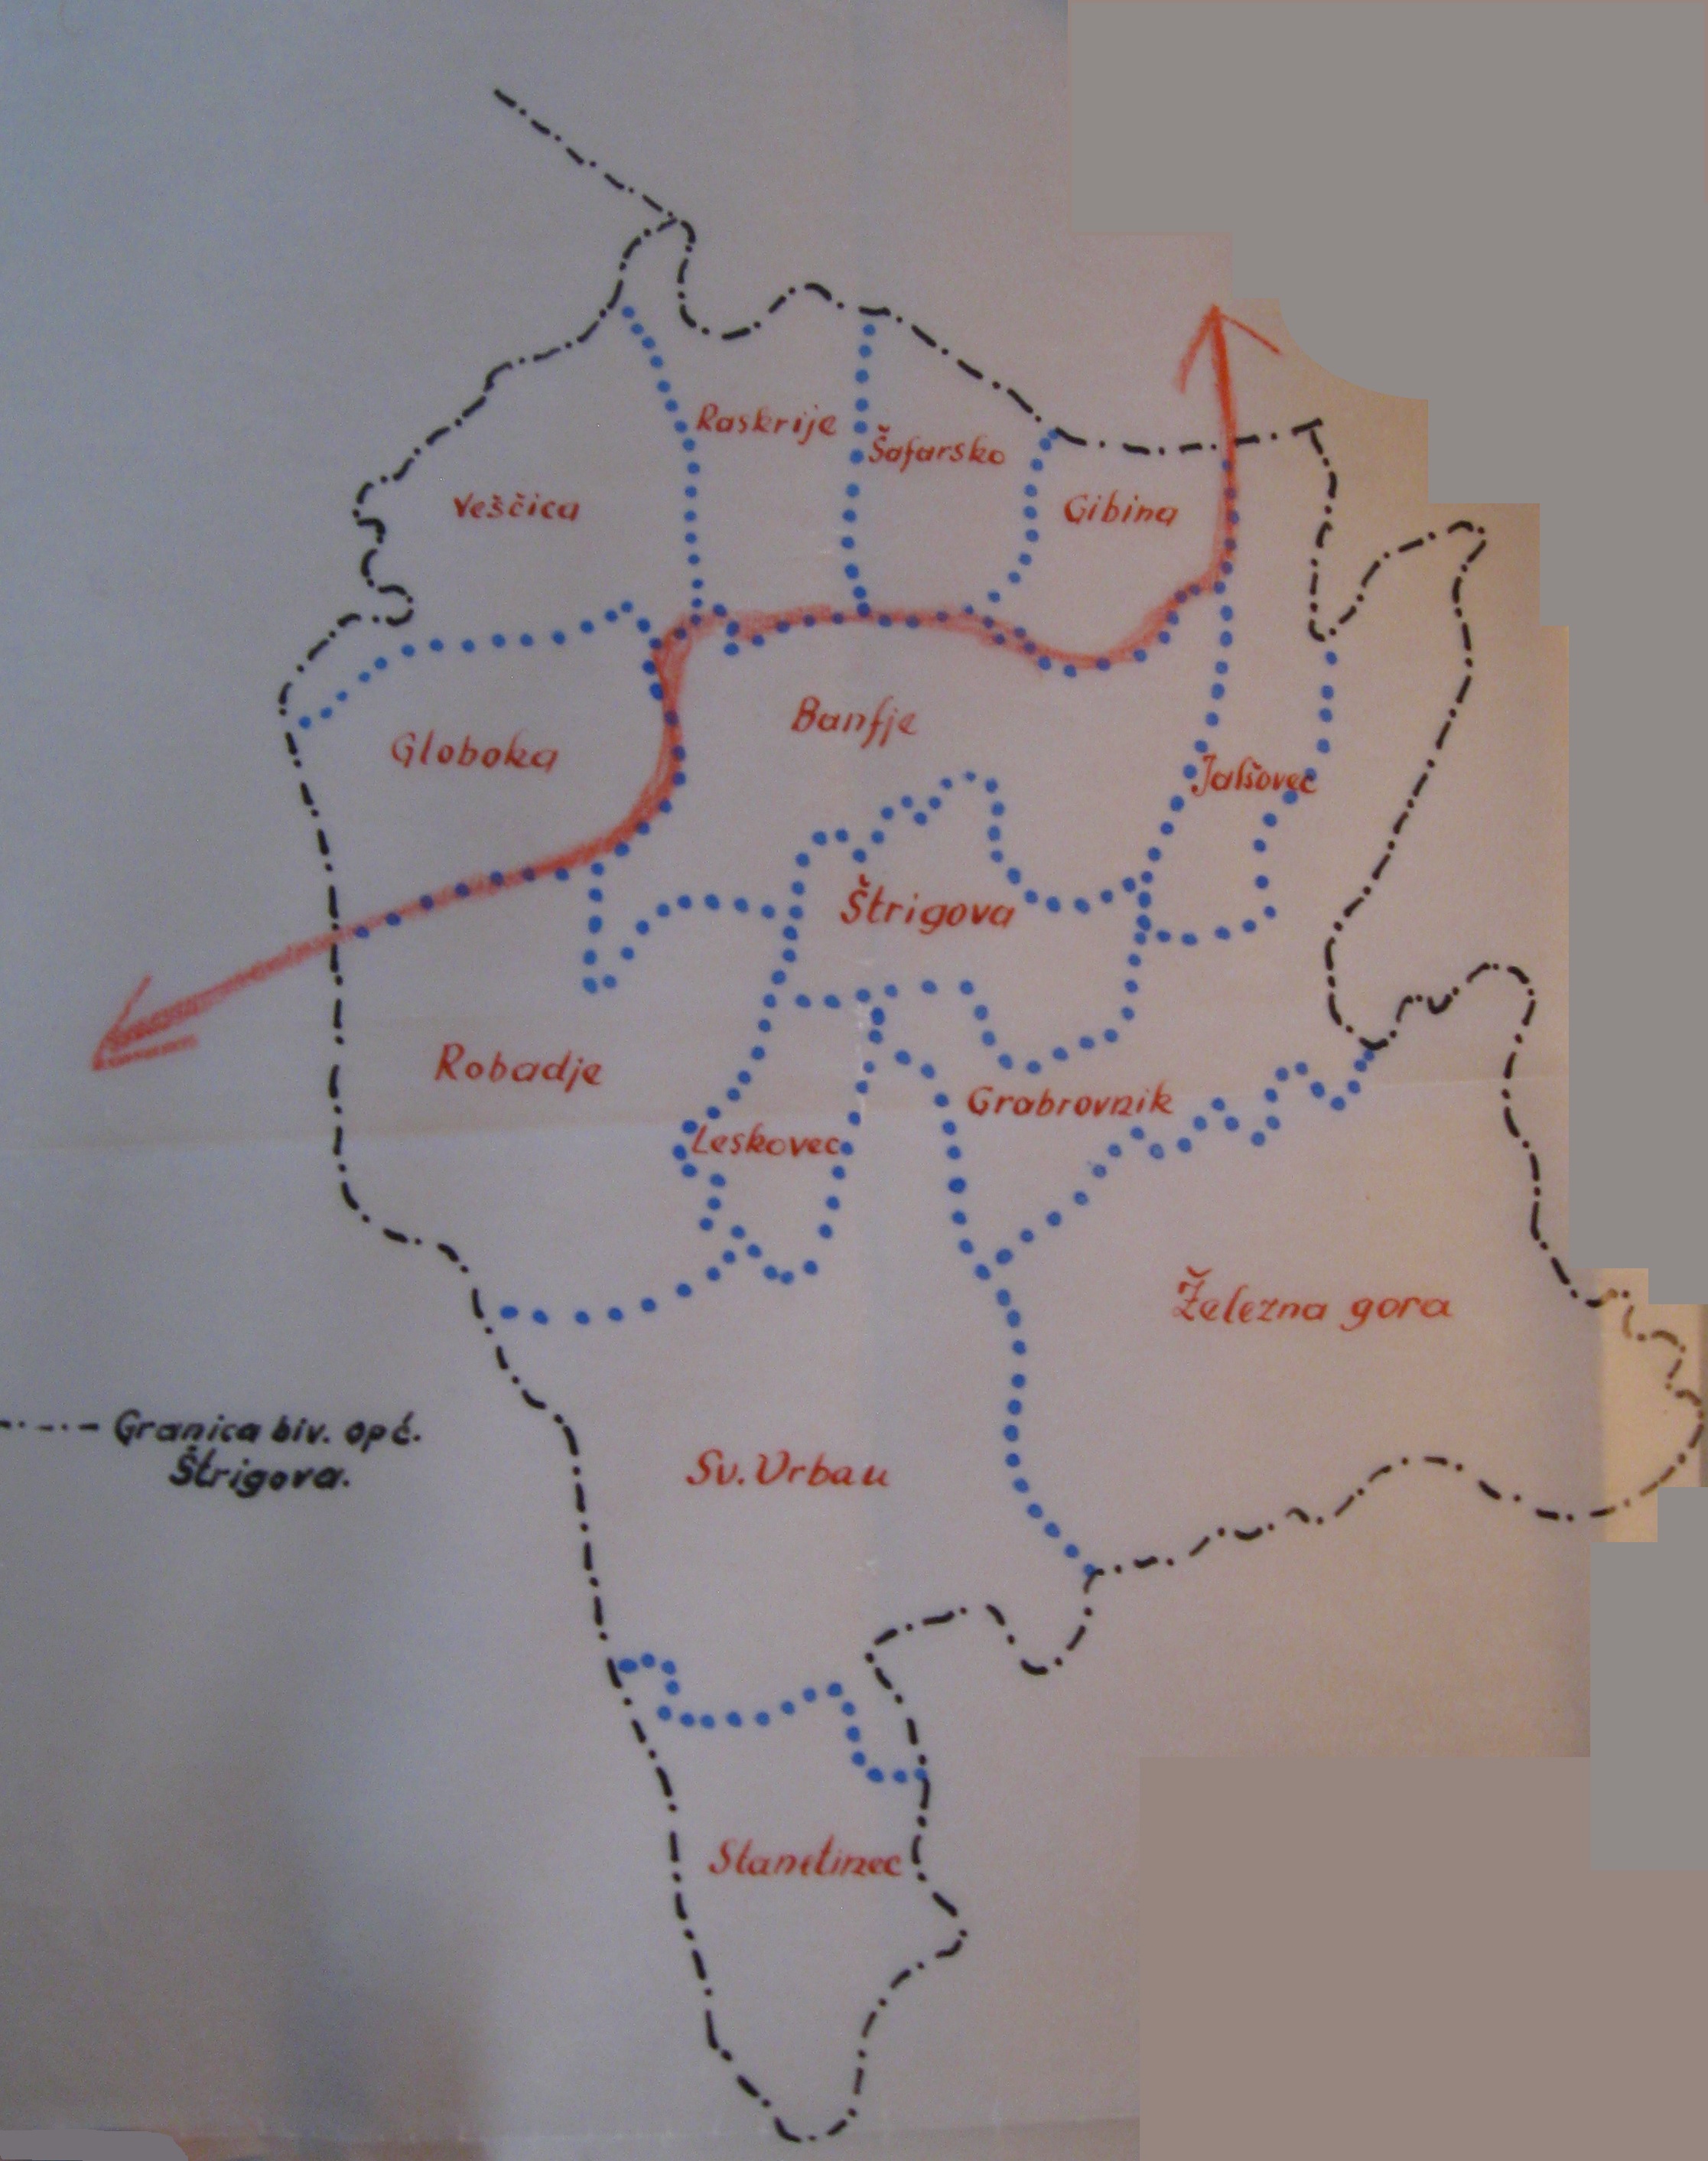 Raskrije
Šafarsko
Veščica
Gibina
Banfje
Globoka
Jalšovec
Štrigova
Robadje
Grabrovnik
Leskovec
Železna gora
Granica biv. opć.
Štrigova.
Sv. Urbau
Stanetinec